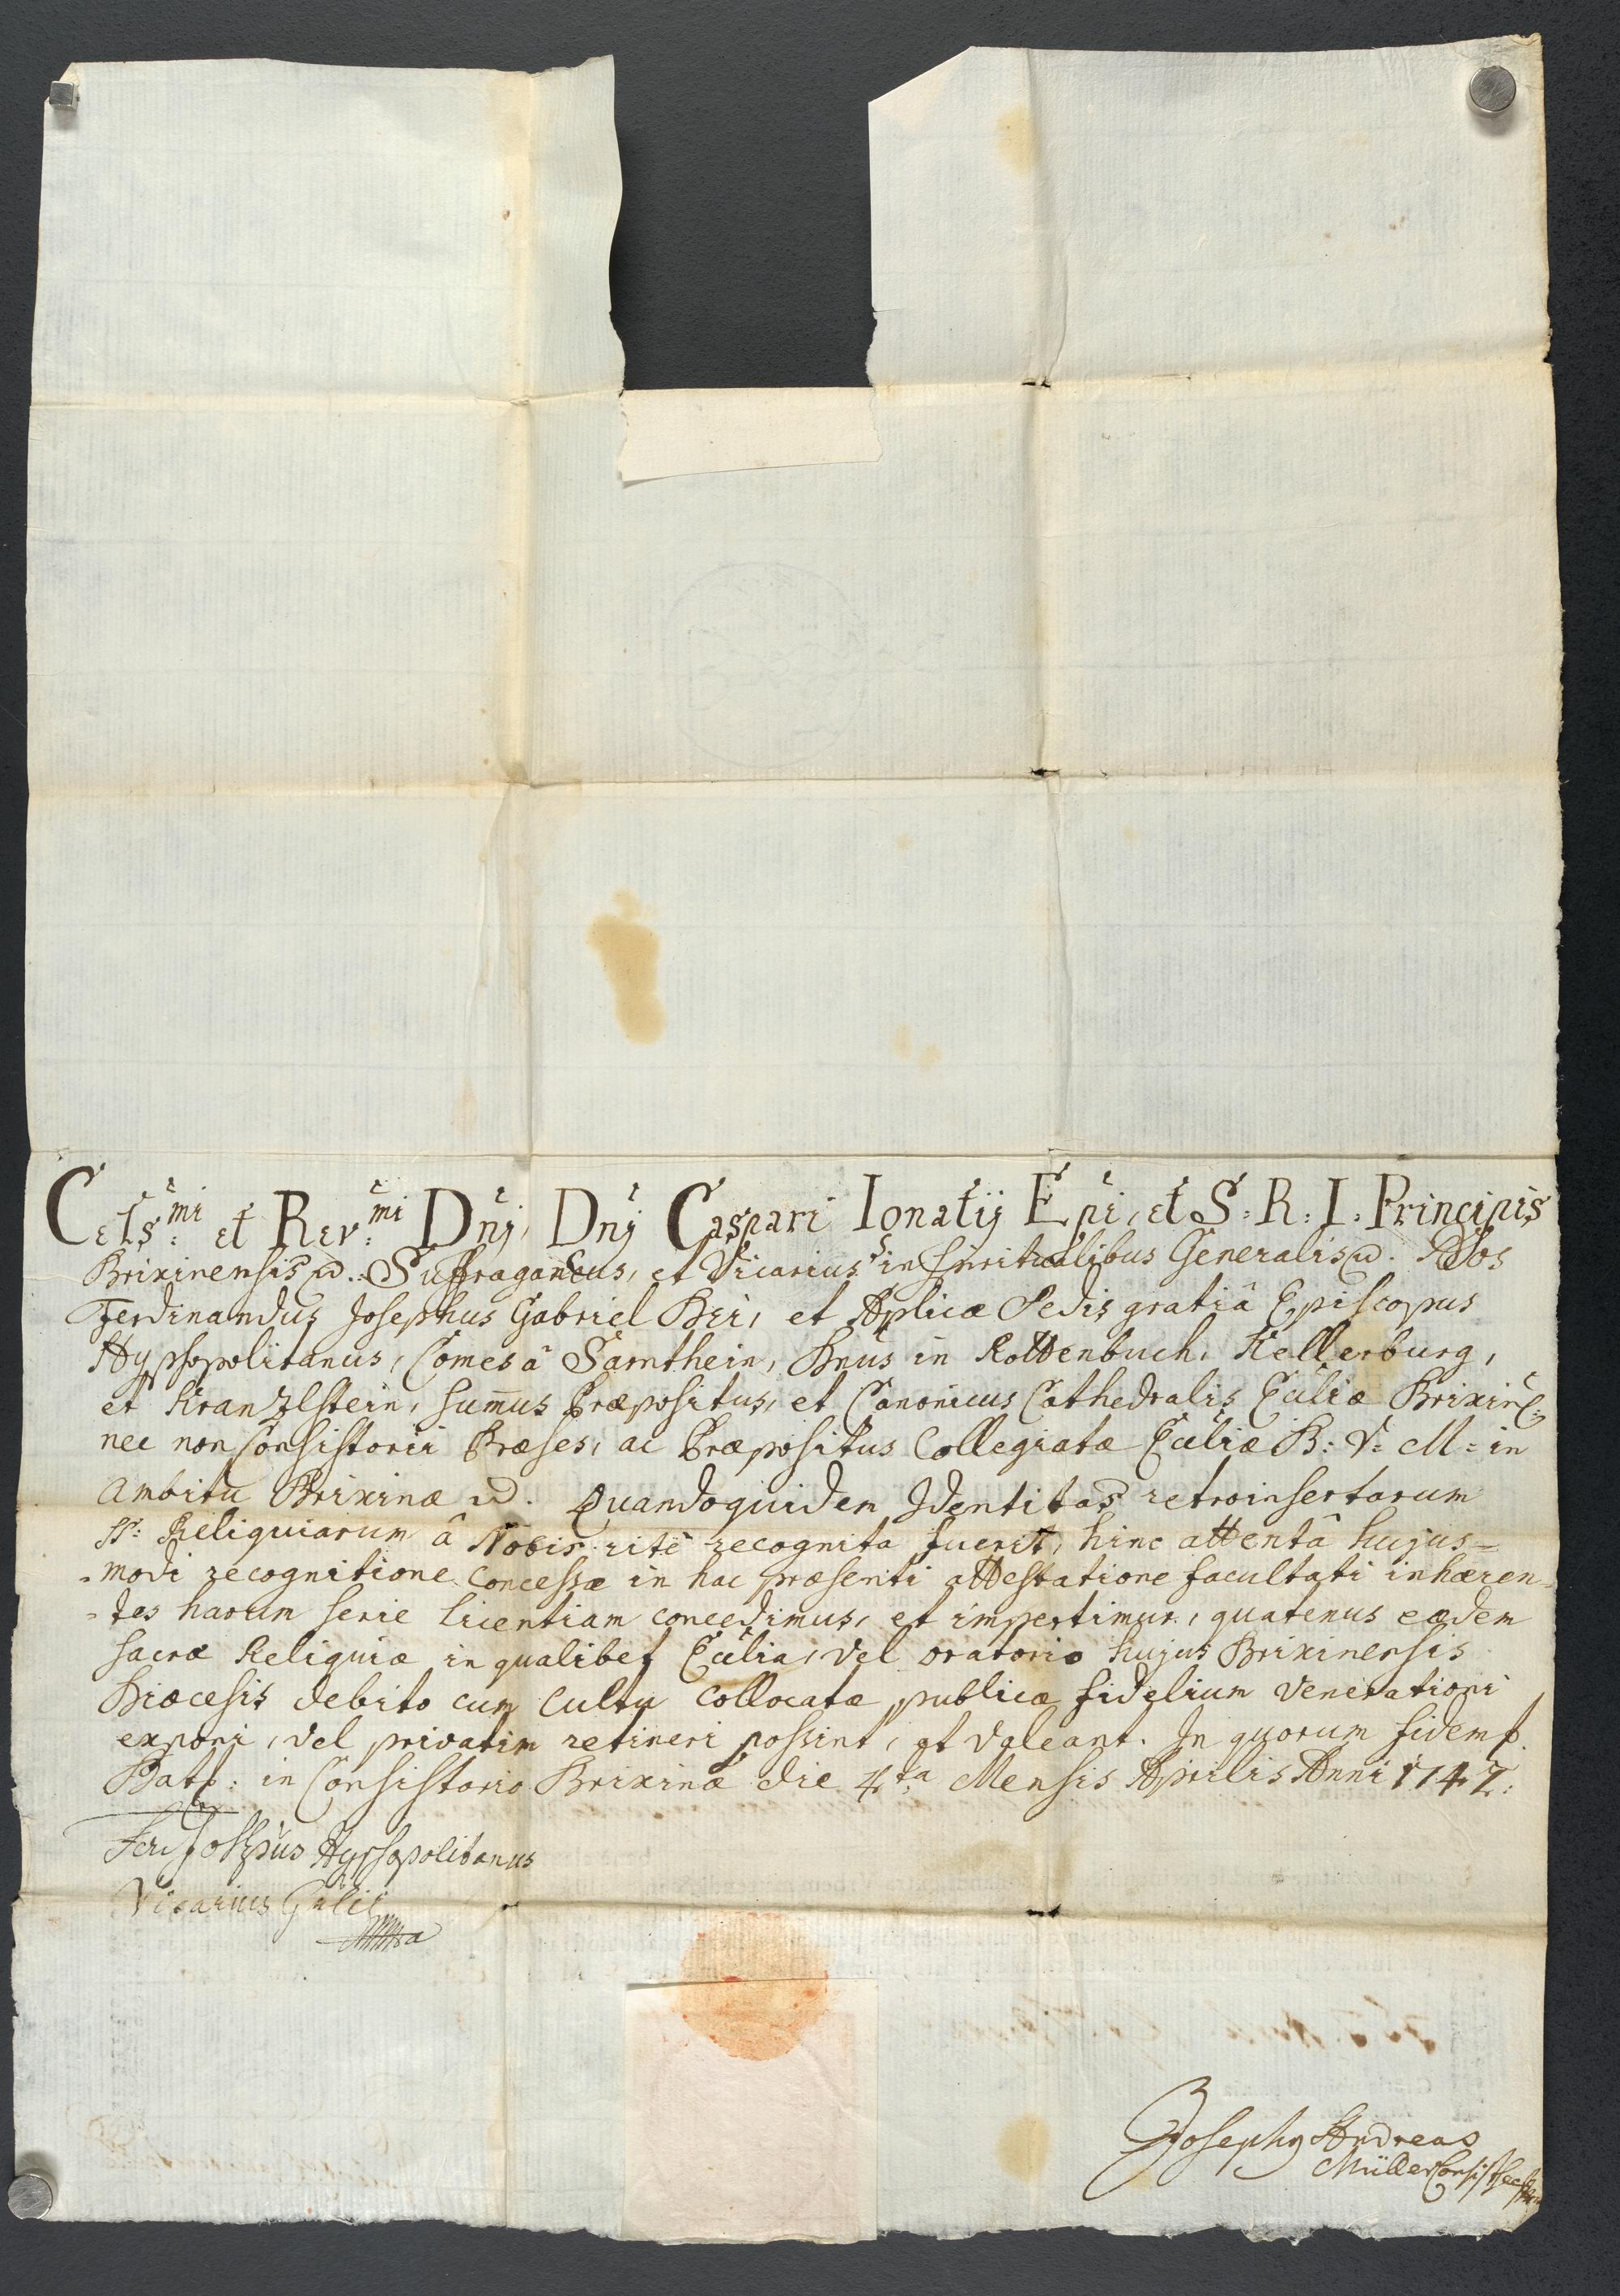 Cels:mi et Rev:mi Dnj, Dnj Caspari Ignatij Epi, et S: R: I: Principis
Brixinensis &. Suffraganeus, et Vicarius in Spiritualibus Generalis &. Nos
Ferdinandus Josephus Gabriel Dei, et Aplicæ Sedis gratiâ Episcopus
Hypsopolitanus, Comes â Sarnthein, Dnus in Rottenbuch, Kellerburg,
et Kranzlstein, sum̄us Præpositus, et Canonicus Cathedralis Ecclïæ Brixin:
nec non Consistorii Præses, ac Præpositus Collegiatæ Ecclïæ B: V: M: in
Ambitu Brixinæ &. Quandoquidem Identitas retroinsertarum
SS: Reliquiarum â Nobis ritè recognita fuerit, hinc attentâ hujus=
=modi recognitione concessæ in hac præsenti attestatione facultati inhæren=
=tes harum serie licentiam concedimus, et impertimur, quatenus eædem
sacræ Reliquiæ in qualibet Ecclïa, vel oratorio hujus Brixinensis
Diæcesis debito cum cultu collocatæ publicæ fidelium venerationi
exponi, vel privatim retineri possint, et valeant. In quorum fidem p.
Dat: in Consistorio Brixinæ die 4:ta Mensis Aprilis Anni 1747:
Hypsopolitanus
Vicarius Gñlis
Josephus Andreas
Müller Consist: